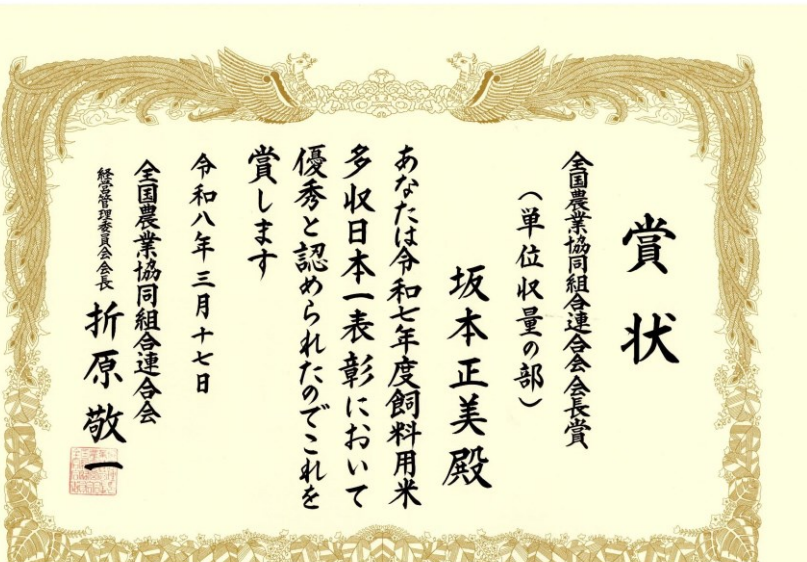 賞状
全国農業協同組合連合会会長賞
(単位収量の部)
坂本正美殿
あなたは令和七年度飼料用米
多収日本一表彰において
優秀と認められたのでこれを
賞します
令和八年三月十七日
全国農業協同組合連合会
経営管理委員会会長 折原敬一